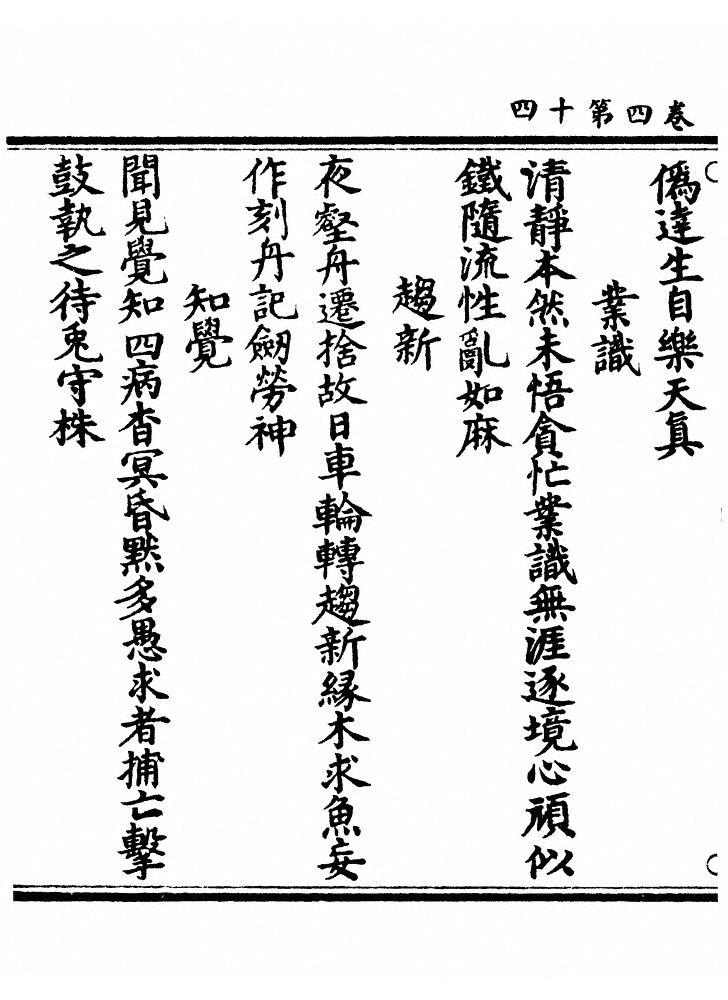 卷四第十四
僞達生自樂天真
業識
清靜本然未悟貪忙業識無涯逐境心頑似
鐵隨流性亂如麻
趨新
夜壑舟遷捨故日車輪轉趨新緣木求魚妄
作刻舟記劒勞神
知覺
聞見覺知四病杳冥昏默多愚求者捕亡擊
鼓執之待兎守株